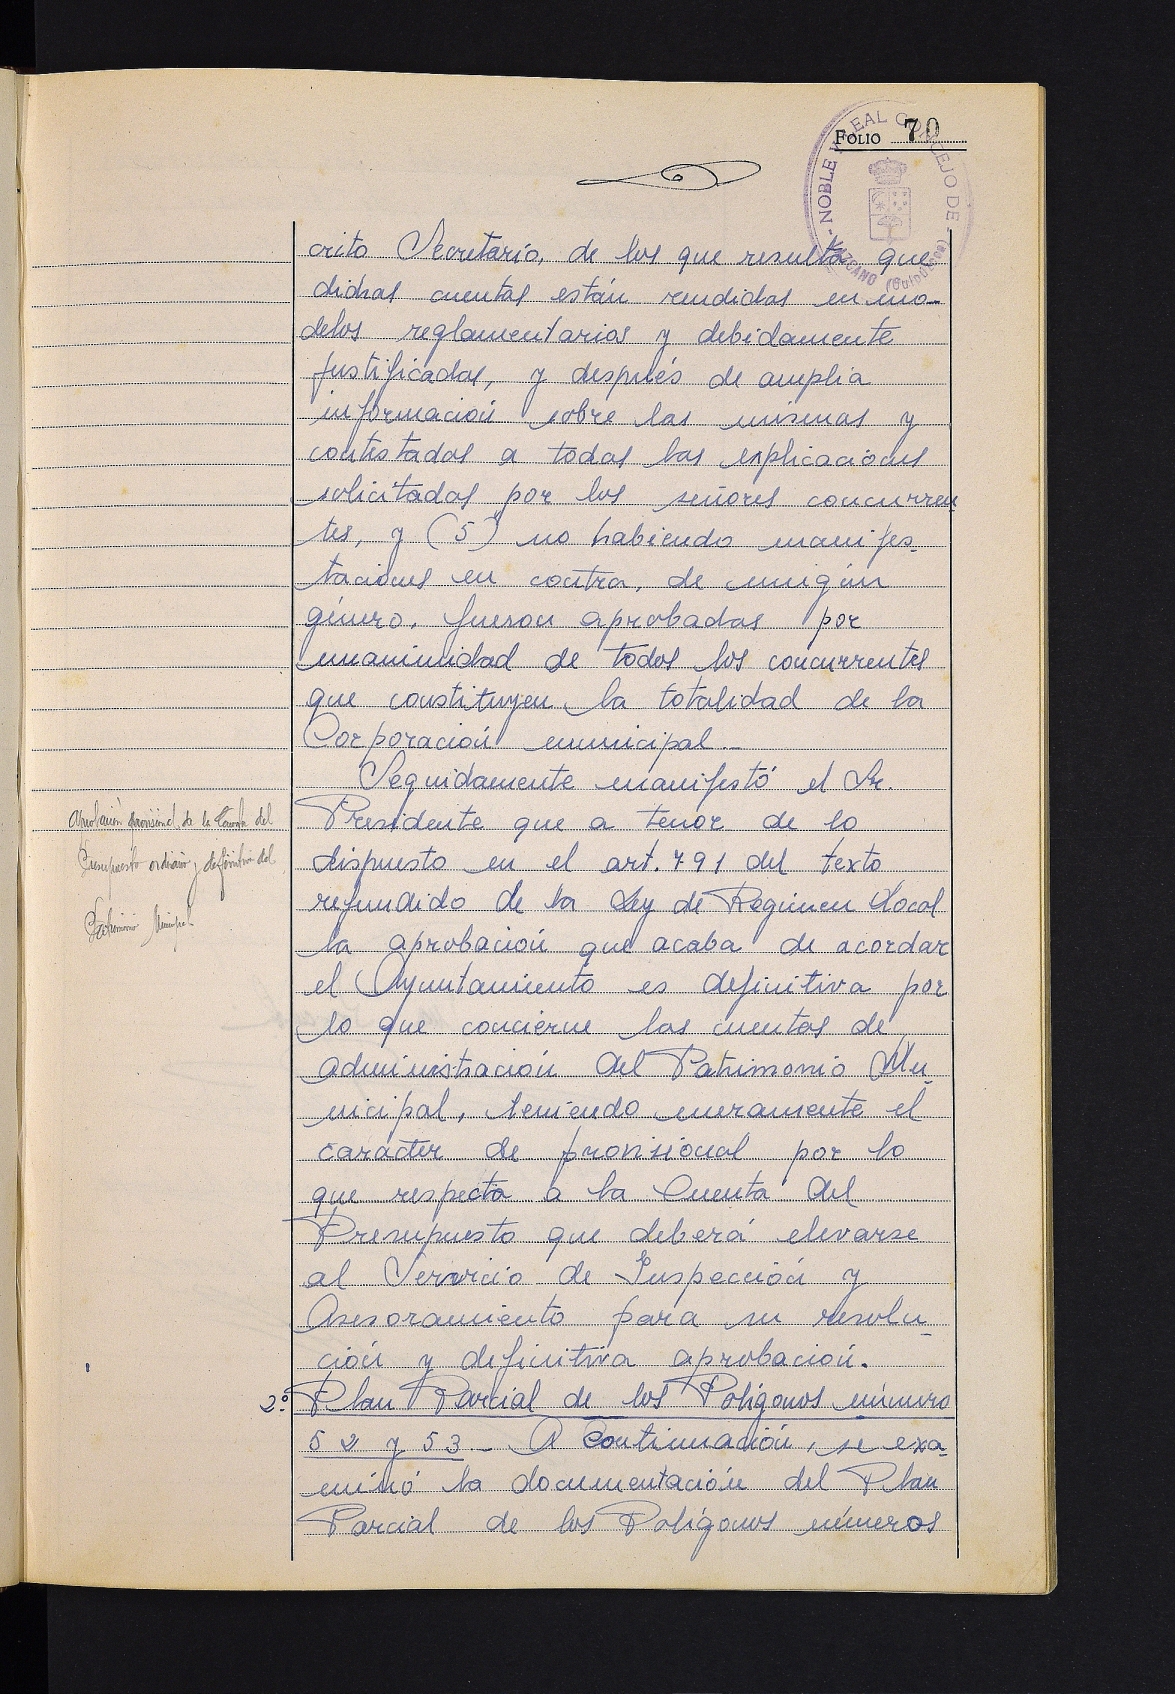 FOLIO 70
NOBLE Y LEAL CONCEJO DE
LAZCANO (Guipúzcoa)
crito Secretario, de los que resulta que
dichas cuentas están rendidas en mo-
delos reglamentarios y debidamente
justificadas, y después de amplia
información sobre las mismas y
contestados a todas las explicaciones
solicitadas por los señores concurren
tes, y (5) no habiendo manifes-
taciones en contra, de ningún
género, fueron aprobadas por
unanimidad de todos los concurrentes
que constituyen la totalidad de la
Corporación municipal.-
Seguidamente manifestó el Sr.
Aprobación provisional de la Cuenta del
Presupuesto ordinario y definitiva del
Patrimonio Municipal
Presidente que a tenor de lo
dispuesto en el art. 791 del texto
refundido de la Ley de Regimen Local
la aprobación que acaba de acordar
el Ayuntamiento es definitiva por
lo que concierne las cuentas de
administración del Patrimonio Mu-
nicipal, teniendo meramente el
caracter de provisional por lo
que respecta a la Cuenta del
Presupuesto que deberá elevarse
al Servicio de Inspección y
Asesoramiento para su resolu-
ción y definitiva aprobación.
2º Plan Parcial de los Polígonos número
52 y 53.- A Continuación, se exa-
minó la documentación del Plan
Parcial de los Polígonos números